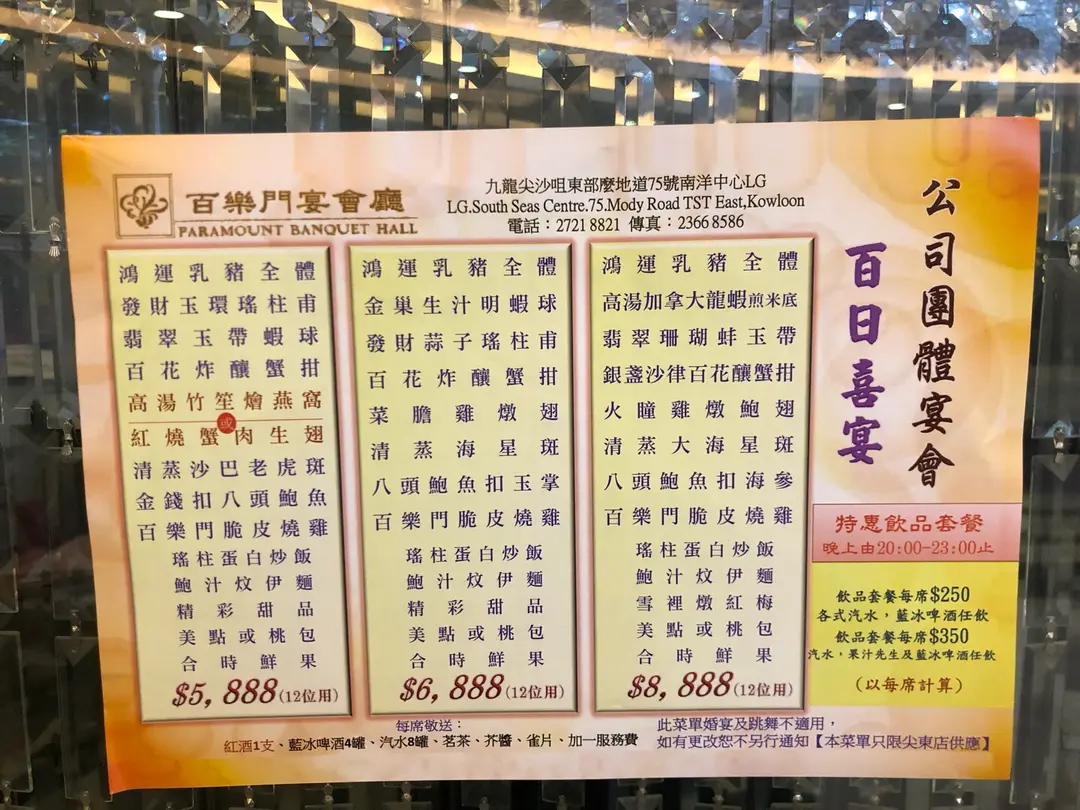 百樂門宴會廳
PARAMOUNT BANQUET HALL
九龍尖沙咀東部麼地道75號南洋中心LG
LG.South Seas Centre.75.Mody Road TST East,Kowloon
電話：2721 8821 傳真：2366 8586
鴻運乳豬全體
發財玉環瑤柱甫
翡翠玉帶蝦球
百花炸釀蟹拑
高湯竹笙燴燕窩
或
紅燒蟹肉生翅
清蒸沙巴老虎斑
金錢扣八頭鮑魚
百樂門脆皮燒雞
瑤柱蛋白炒飯
鮑汁炆伊麵
精彩甜品
美點或桃包
合時鮮果
$5,888(12位用)
鴻運乳豬全體
金巢生汁明蝦球
發財蒜子瑤柱甫
百花炸釀蟹拑
菜膽雞燉翅
清蒸海星斑
八頭鮑魚扣玉掌
百樂門脆皮燒雞
瑤柱蛋白炒飯
鮑汁炆伊麵
精彩甜品
美點或桃包
合時鮮果
$6,888(12位用)
鴻運乳豬全體
高湯加拿大龍蝦煎米底
翡翠珊瑚蚌玉帶
銀盞沙律百花釀蟹拑
火瞳雞燉鮑翅
清蒸大海星斑
八頭鮑魚扣海參
百樂門脆皮燒雞
瑤柱蛋白炒飯
鮑汁炆伊麵
雪裡燉紅梅
美點或桃包
合時鮮果
$8,888(12位用)
公司團體宴會
百日喜宴
特惠飲品套餐
晚上由20:00-23:00止
飲品套餐每席$250
各式汽水，藍冰啤酒任飲
飲品套餐每席$350
汽水，果汁先生及藍冰啤酒任飲
（以每席計算）
每席敬送：
紅酒1支、藍冰啤酒4罐、汽水8罐、茗茶、芥醬、雀片、加一服務費
此菜單婚宴及跳舞不適用，
如有更改恕不另行通知【本菜單只限尖東店供應】